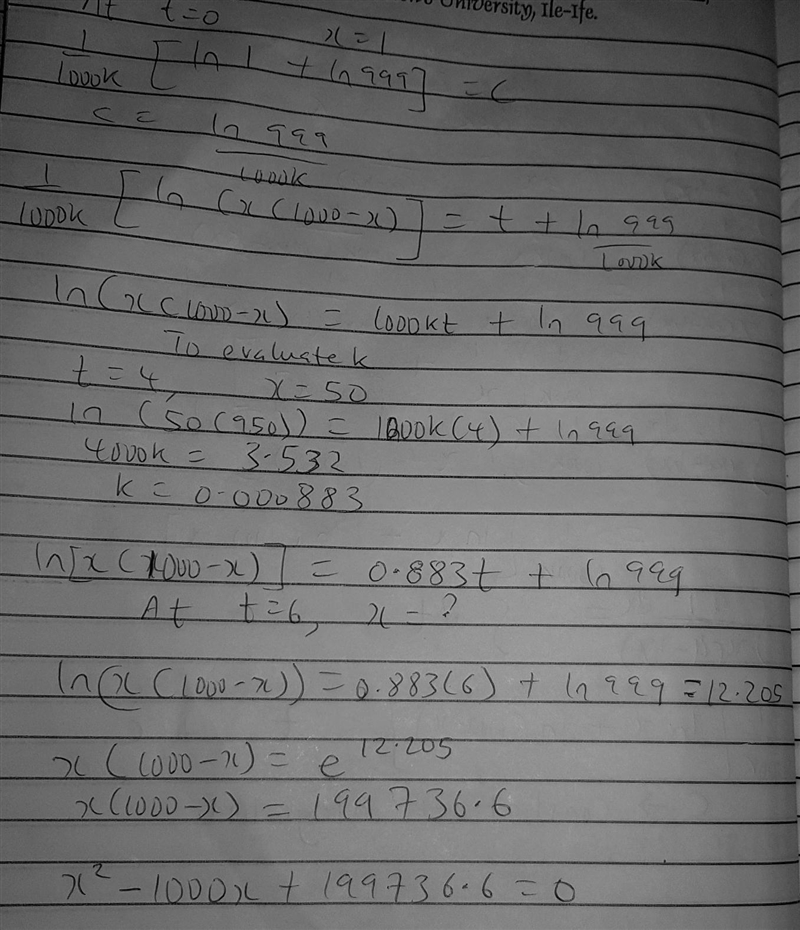 University, Ile-Ife.
At t=0 x=1
1/1000k [ln 1 + ln 999] = C
C = ln 999/1000k
1/1000k [ln (x(1000-x)] = t + ln 999/1000k
ln(x(1000-x) = 1000kt + ln 999
To evaluate k
t=4, x=50
ln (50(950)) = 1000k(4) + ln 999
4000k = 3.532
k = 0.000883
ln[x(1000-x)] = 0.883t + ln 999
At t=6, x=?
ln(x(1000-x)) = 0.883(6) + ln 999 = 12.205
x(1000-x) = e^12.205
x(1000-x) = 199736.6
x² - 1000x + 199736.6 = 0